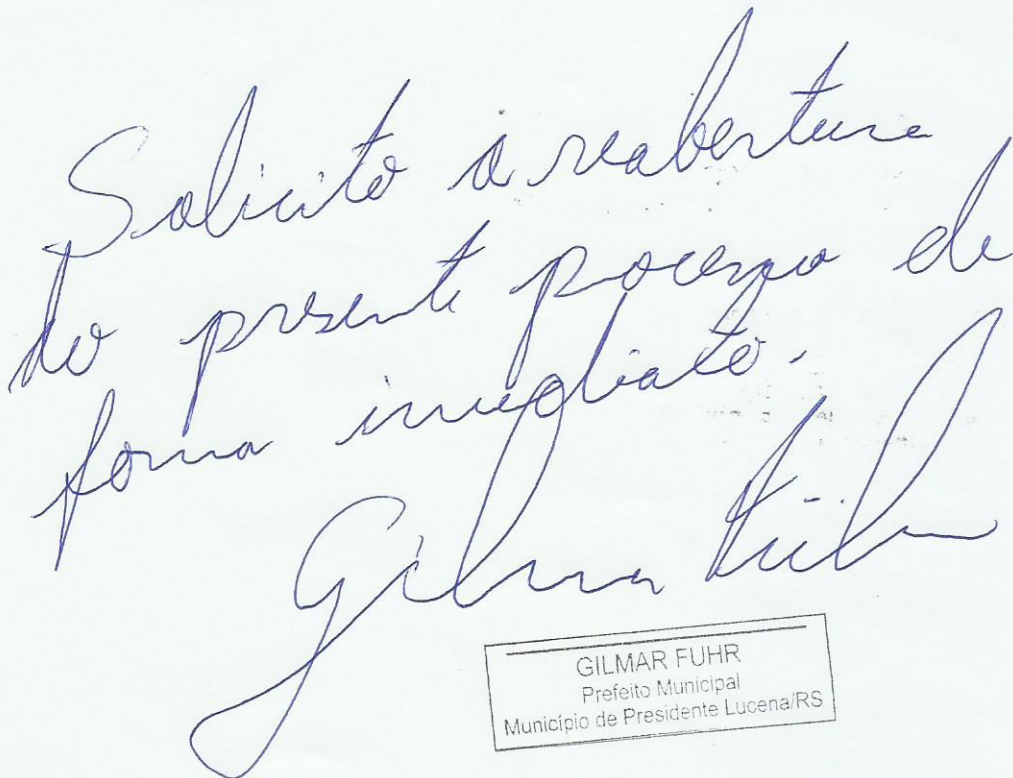 Solicito a reabertura
do presente processo de
forma imediato.
Gilmar Führ
GILMAR FUHR
Prefeito Municipal
Município de Presidente Lucena/RS